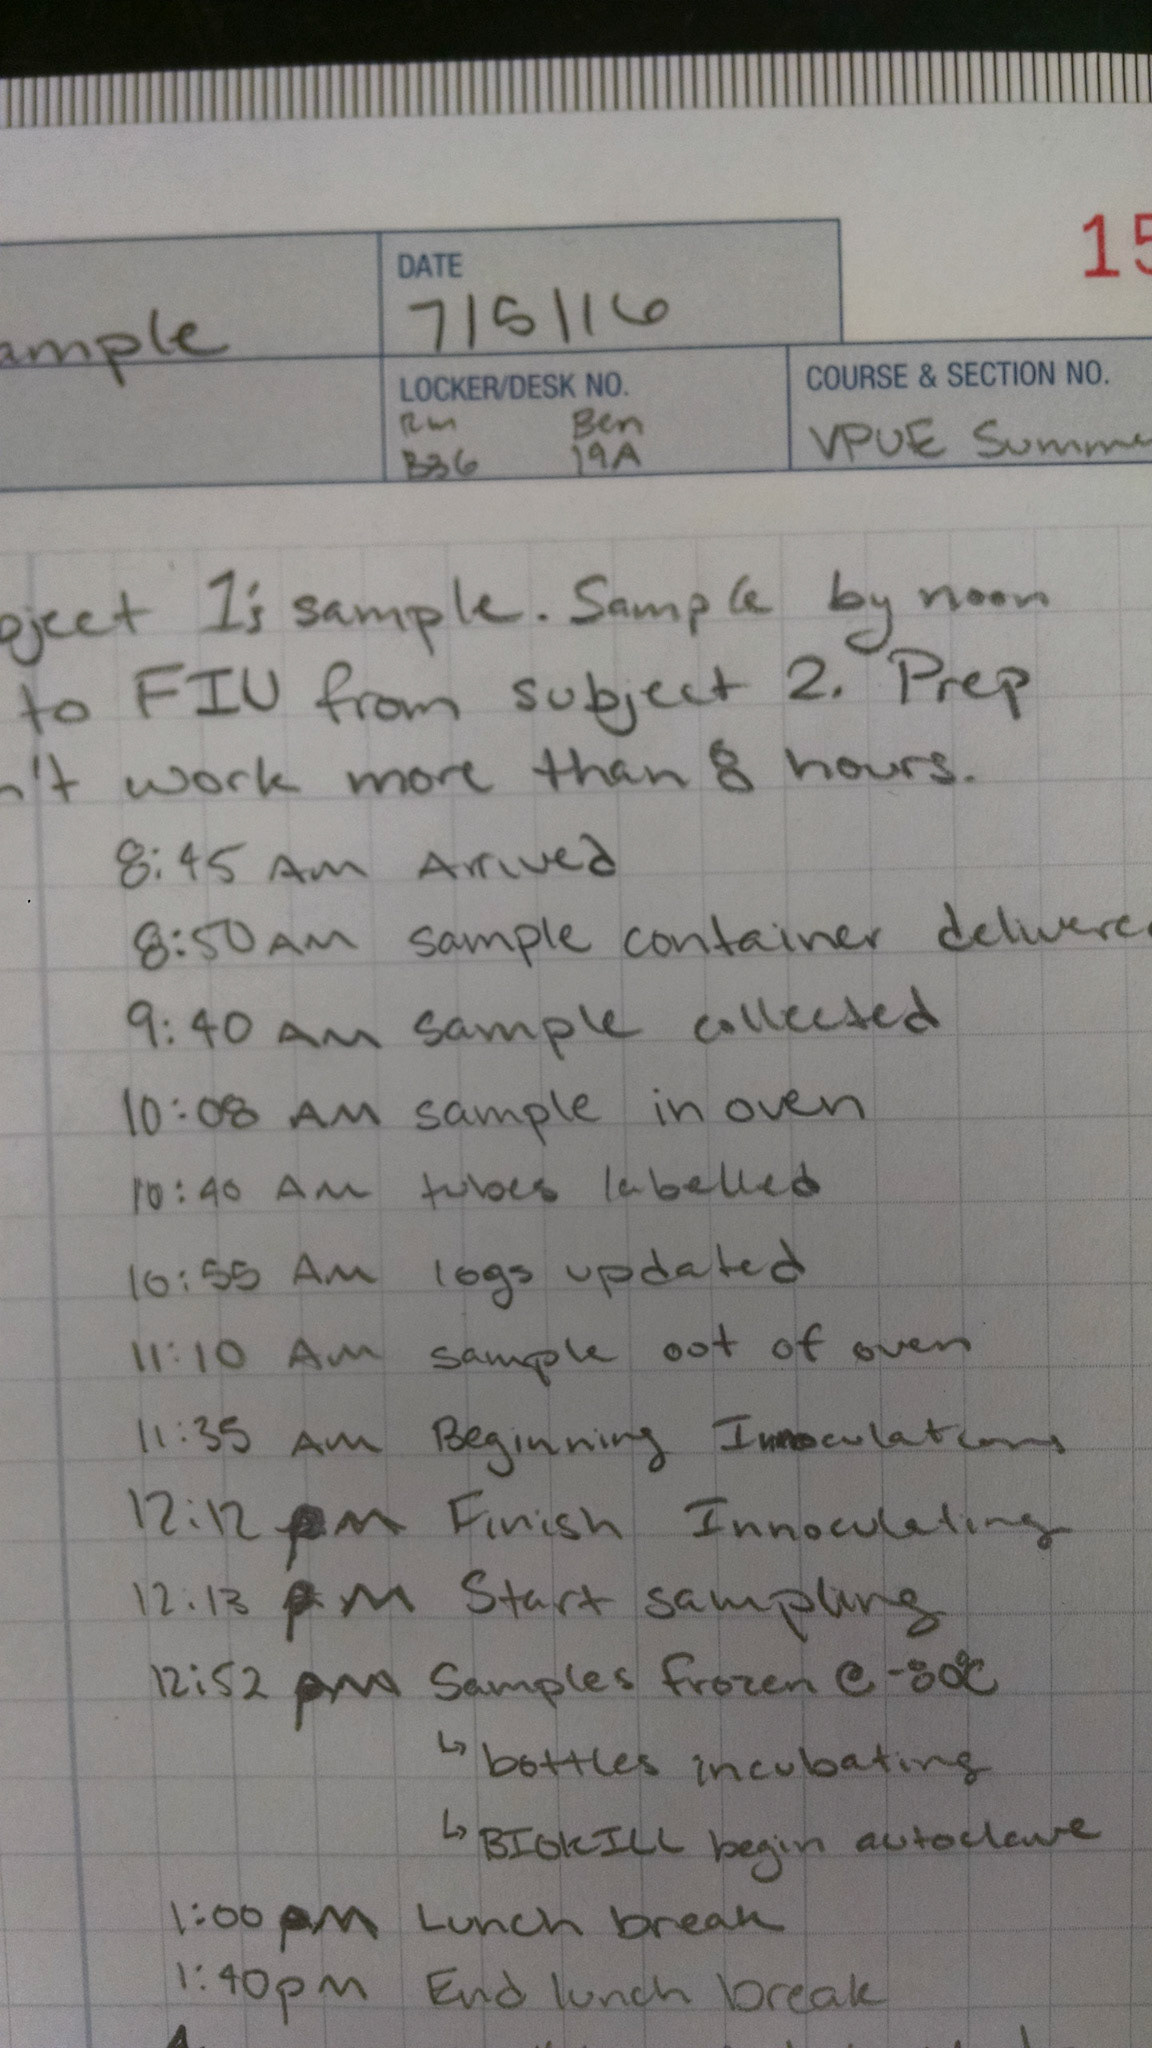 15
DATE
ample
7/5/16
LOCKER/DESK NO.
COURSE & SECTION NO.
Rm Ben
B36 19A
VPUE Summe
bject 1's sample. Sample by noon
to FIU from subject 2. Prep
n't work more than 8 hours.
8:45 AM Arrived
8:50 AM sample container delivere
9:40 AM sample collected
10:08 AM sample in oven
10:40 AM tubes labelled
10:55 AM logs updated
11:10 AM sample out of oven
11:35 AM Beginning Innoculations
12:12 PM Finish Innoculating
12:13 PM Start sampling
12:52 PM Samples frozen @ -80°C
↳ bottles incubating
↳ BIOKILL begin autoclave
1:00 PM Lunch break
1:40 pm End lunch break